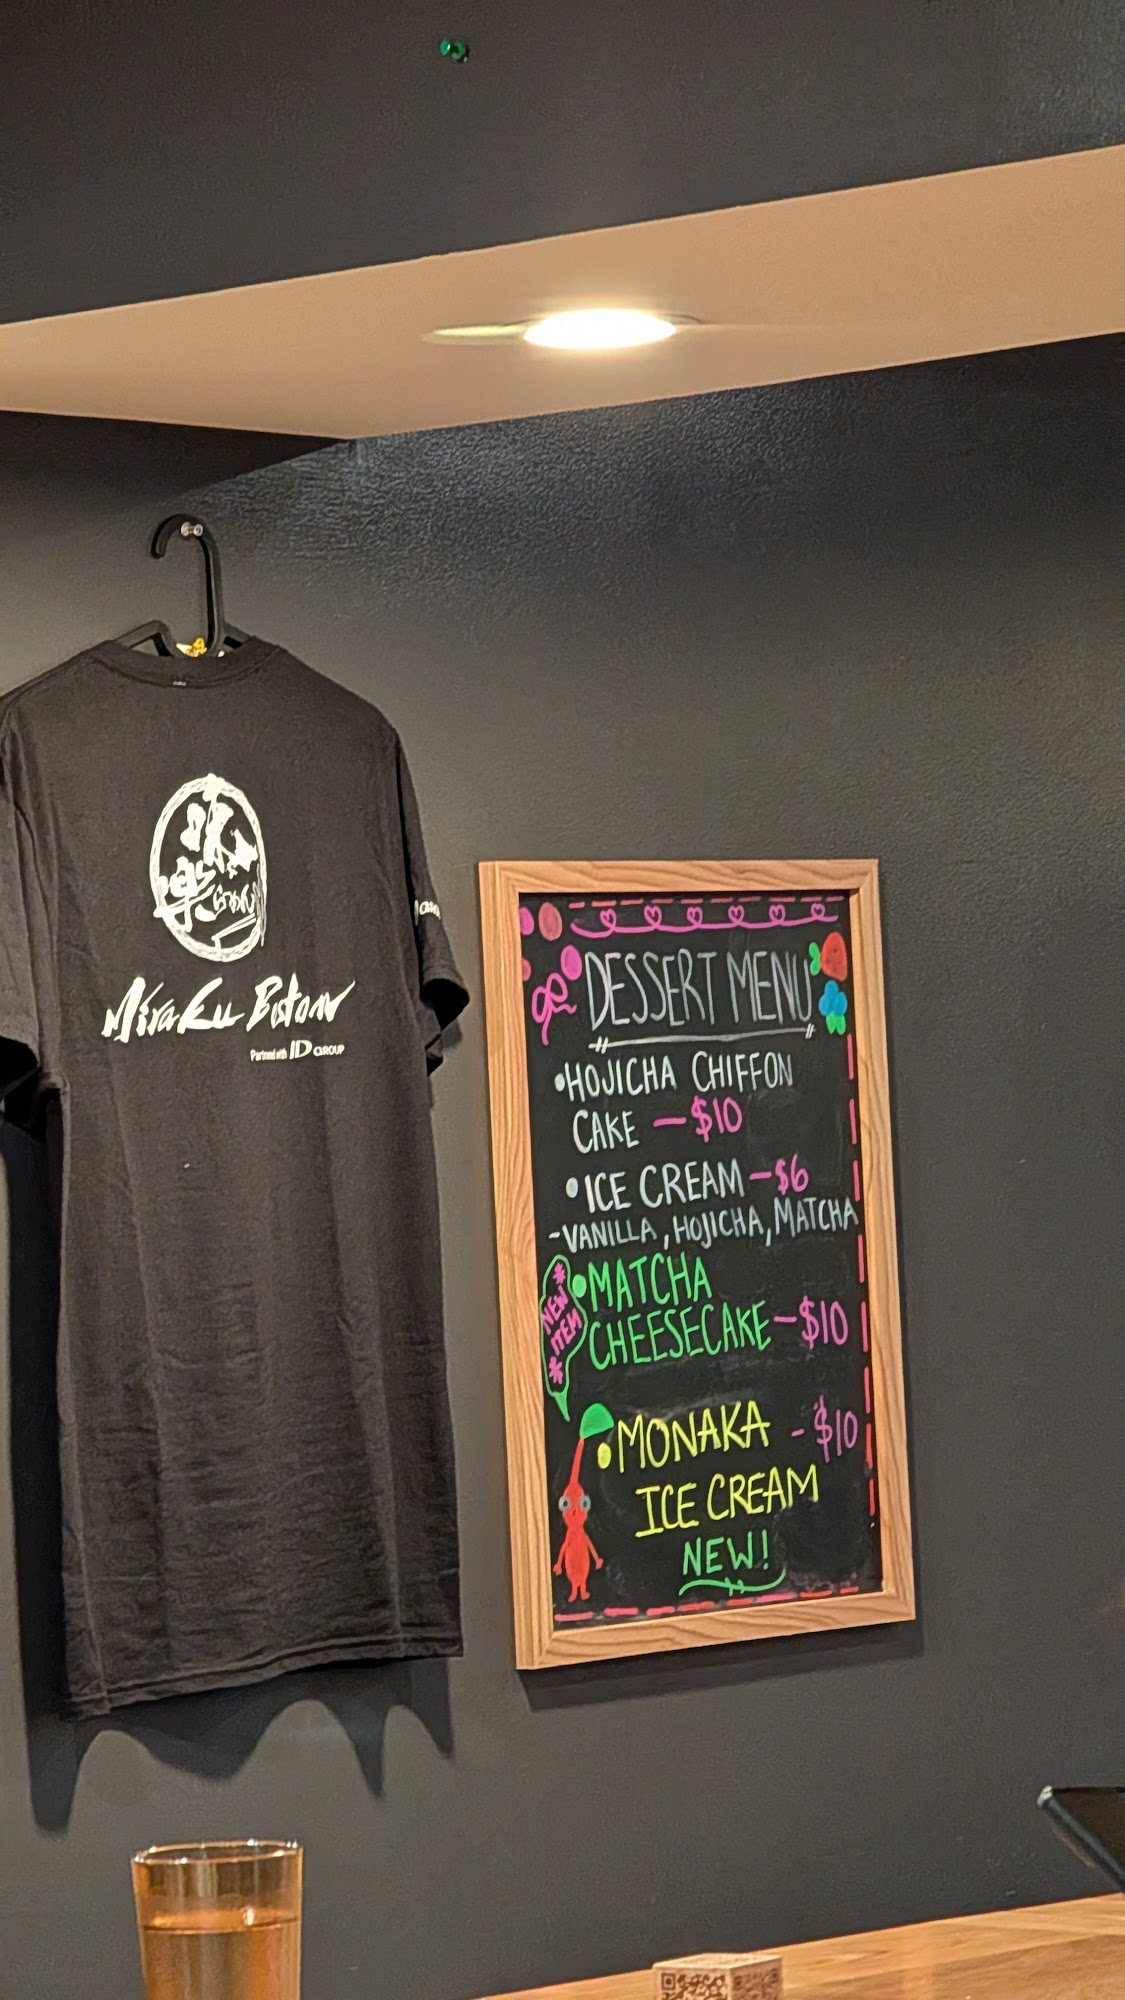 楽
Miraku Bistone
Partnered with ID GROUP
DESSERT MENU
•HOJICHA CHIFFON
CAKE —$10
•ICE CREAM —$6
-VANILLA, HOJICHA, MATCHA
*NEW
ITEM*
•MATCHA
CHEESECAKE —$10
•MONAKA -$10
ICE CREAM
NEW!